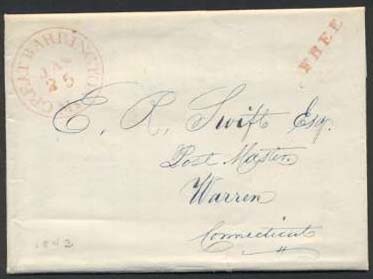 GREAT BARRINGTON
JAN
25
FREE
E. R. Swift Esq.
Post Master
Warren
Connecticut
1842